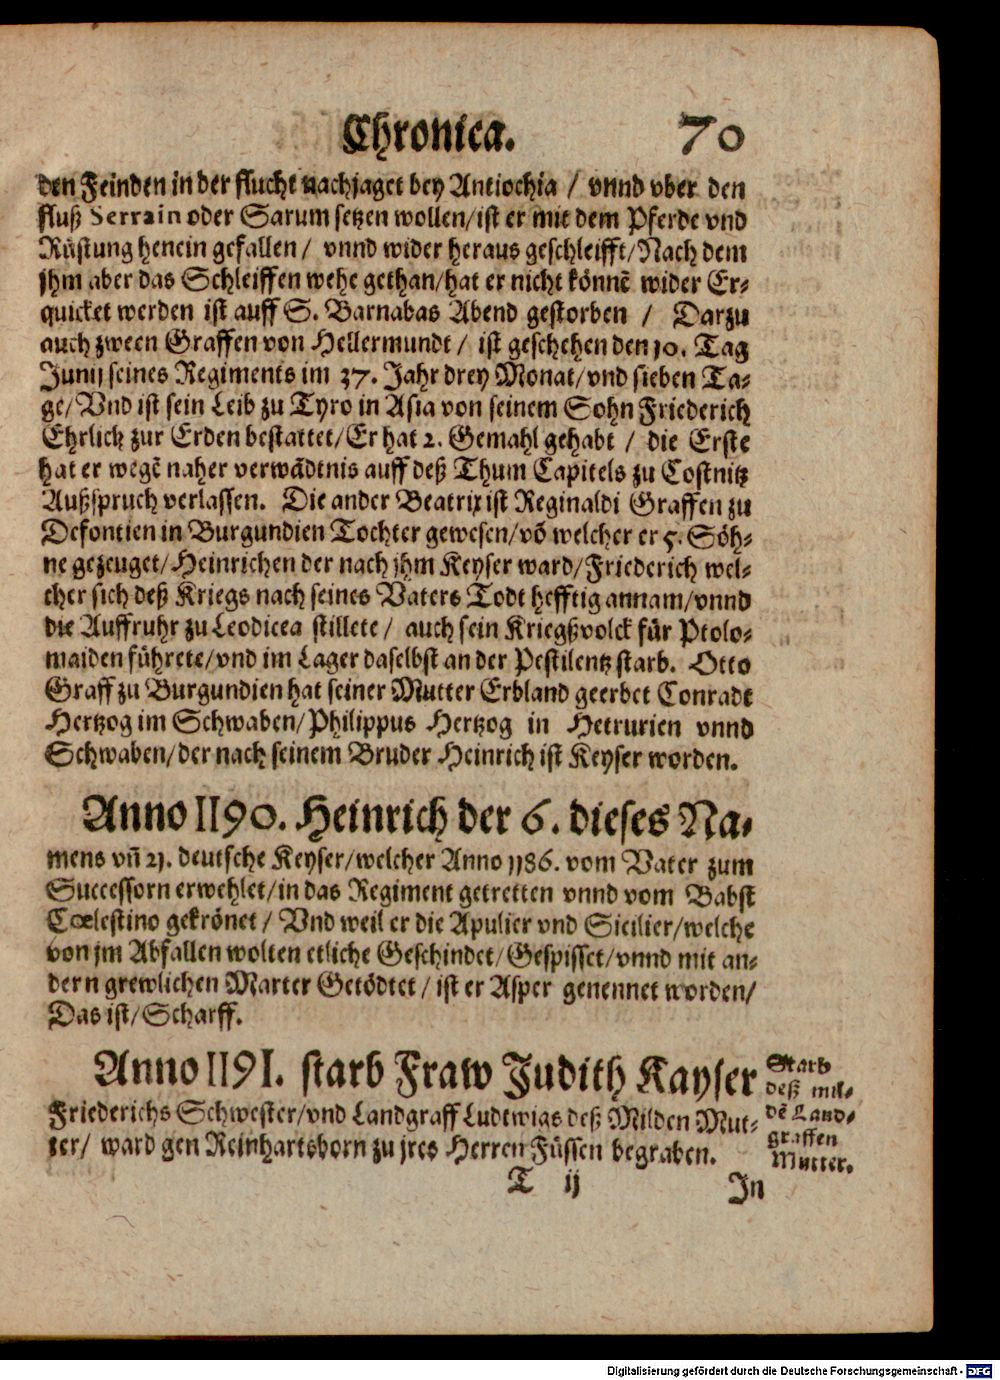 Chronica. 70
den Feinden in der flucht nachjaget bey Antiochia / vnnd vber den
fluß Serrain oder Sarum setzen wollen/ist er mit dem Pferde vnd
Rüstung henein gefallen / vnnd wider heraus geschleifft/Nach dem
jhm aber das Schleiffen wehe gethan/hat er nicht könnẽ wider Er-
quicket werden ist auff S. Barnabas Abend gestorben / Darzu
auch zween Graffen von Hellermundt / ist geschehen den 10. Tag
Junij seines Regiments im 37. Jahr drey Monat/vnd sieben Ta-
ge/Vnd ist sein Leib zu Tyro in Asia von seinem Sohn Friederich
Ehrlich zur Erden bestattet/Er hat 2. Gemahl gehabt / die Erste
hat er wegẽ naher verwãdtnis auff deß Thum Capitels zu Costnitz
Außspruch verlassen. Die ander Beatrix ist Reginaldi Graffen zu
Defontien in Burgundien Tochter gewesen/võ welcher er 5. Söh-
ne gezeuget/Heinrichen der nach jhm Keyser ward/Friederich wel-
cher sich deß Kriegs nach seines Vaters Todt hefftig annam/vnnd
die Auffruhr zu Leodicea stillete / auch sein Kriegßvolck für Ptolo-
maiden führete/vnd im Lager daselbst an der Pestilentz starb. Otto
Graff zu Burgundien hat seiner Mutter Erbland geerbet Conradt
Hertzog im Schwaben/Philippus Hertzog in Hetrurien vnnd
Schwaben/der nach seinem Bruder Heinrich ist Keyser worden.
Anno 1190. Heinrich der 6. dieses Na-
mens vñ 21. deutsche Keyser/welcher Anno 1186. vom Vater zum
Successorn erwehlet/in das Regiment getretten vnnd vom Babst
Cœlestino gekrönet / Vnd weil er die Apulier vnd Sicilier/welche
von jm Abfallen wolten etliche Geschindet/Gespisset/vnnd mit an-
dern grewlichen Marter Getödtet / ist er Asper genennet worden/
Das ist/Scharff.
Anno 1191. starb Fraw Judith Kayser
Friederichs Schwester/vnd Landgraff Ludtwigs deß Milden Mut-
ter/ ward gen Reinhartsborn zu jres Herren Füssen begraben.
Starb
deß mil-
dẽ Land-
graffen
Mutter.
T ij In
Digitalisierung gefördert durch die Deutsche Forschungsgemeinschaft - DFG